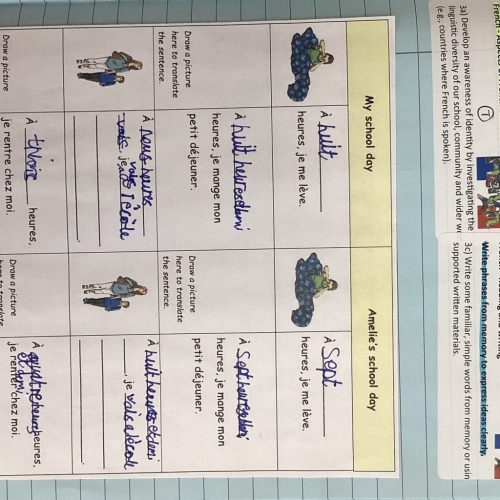 French - Aspects
3a) Develop an awareness of identity by investigating the
linguistic diversity of our school, community and wider w
(e.g., countries where French is spoken).
Write phrases from memory to express ideas clearly.
3c) Write some familiar, simple words from memory or usin
supported written materials.
My school day
Amelie's school day
À huit
heures, je me lève.
À Sept
heures, je me lève.
Draw a picture
here to translate
the sentence.
À huit heures demi
heures, je mange mon
petit déjeuner.
Draw a picture
here to translate
the sentence.
À Sept heures demi
heures, je mange mon
petit déjeuner.
À neuf heures
vais, je vais l'école
À huit heures et demi
, je vais a l'école
Draw a picture
here to translate
the sentence.
À heures,
je rentre chez moi.
Draw a picture
here to translate
À quatre heures heures,
je rentre chez moi.